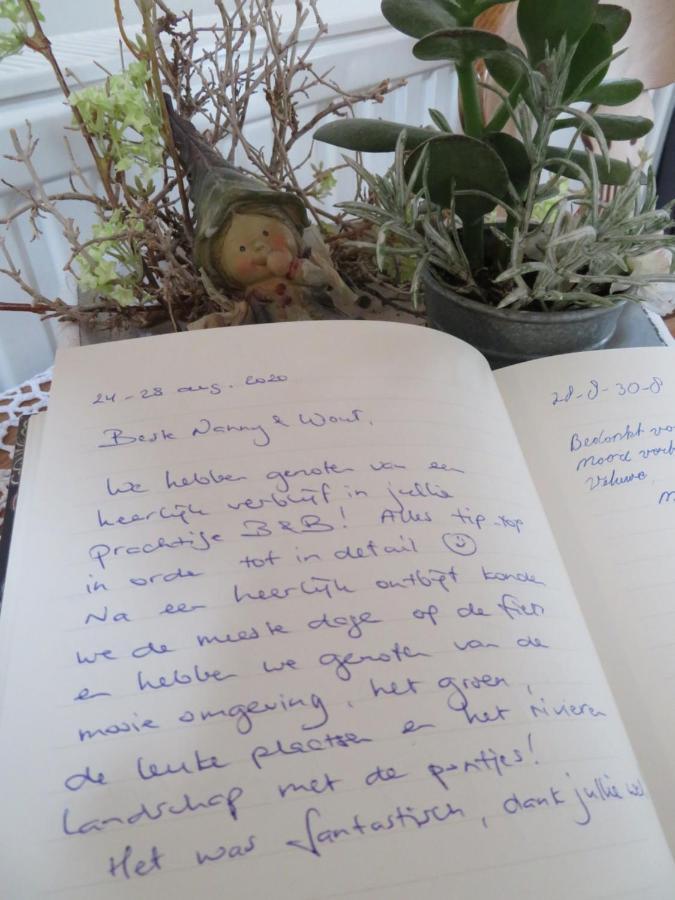 24-28 aug. 2020
Beste Nanny & Wout,
We hebben genoten van een
heerlijk verblijf in jullie
prachtige B&B! Alles tip-top
in orde tot in detail ☺
Na een heerlijk ontbijt konden
we de meeste dage op de fiets
en hebben we genoten van de
mooie omgeving, het groen,
de leuke plaatsen en het rivieren
landschap met de pontjes!
Het was fantastisch, dank jullie wel
28-8-30-8
Bedankt vo
Veluwe,